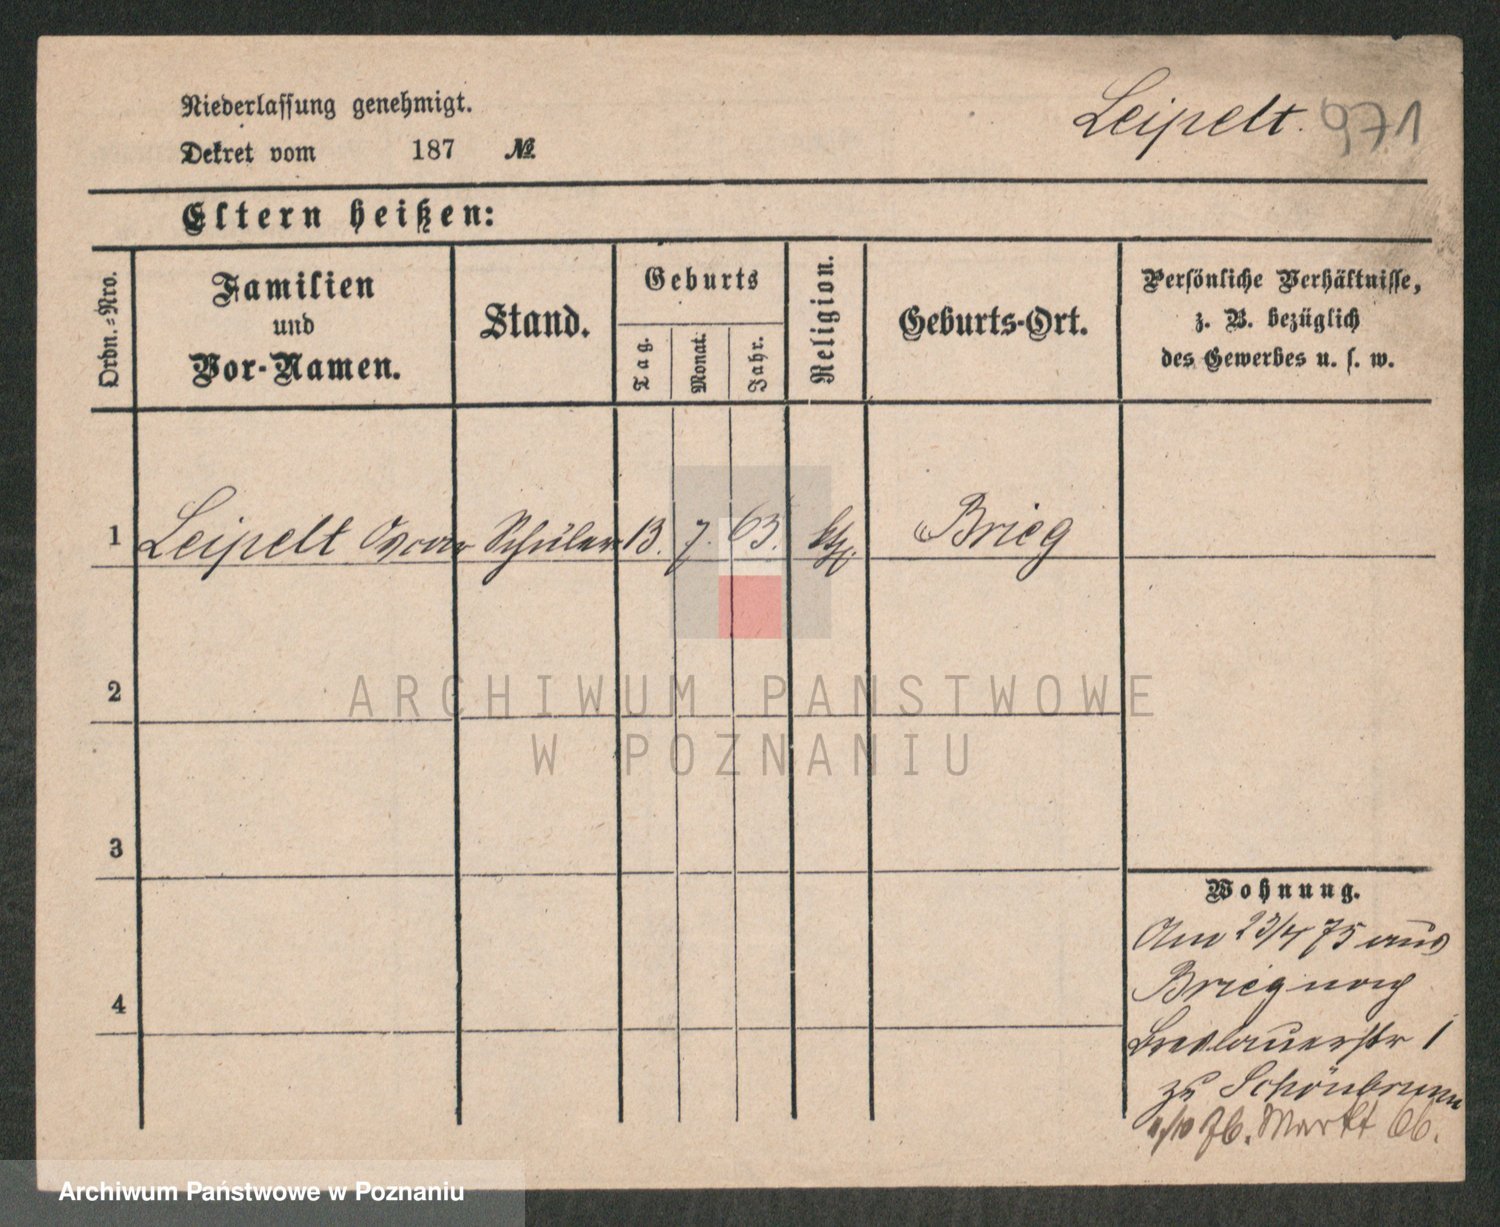 Niederlassung genehmigt.
Leipelt. 971
Dekret vom 187 №
Eltern heißen:
Ordn.=Nro.
Familien
und
Vor-Namen.
Stand.
Geburts
Tag.
Monat.
Jahr.
Religion.
Geburts-Ort.
Persönliche Verhältnisse,
z. B. bezüglich
des Gewerbes u. s. w.
1 Leipelt Oscar Schüler 13. 7. 63. Brieg
2
3
4
Wohnung.
Am 23/4 75 aus
Brieg nach
Breslauerstr 1
zu Schönbrunn
Markt 66.
ARCHIWUM PAŃSTWOWE
W POZNANIU
Archiwum Państwowe w Poznaniu